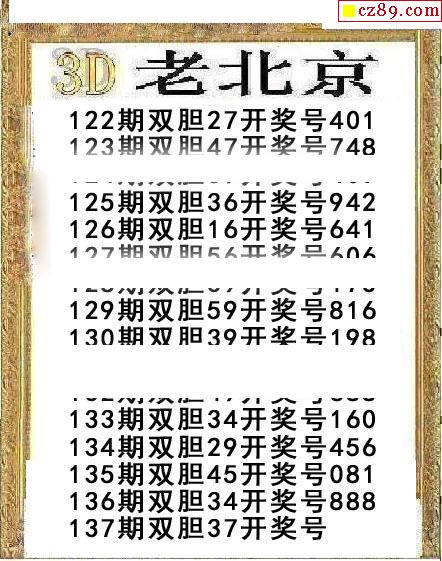 cz89.com
3D 老北京
122期双胆27开奖号401
123期双胆47开奖号748
125期双胆36开奖号942
126期双胆16开奖号641
127期双胆56开奖号606
129期双胆59开奖号816
130期双胆39开奖号198
133期双胆34开奖号160
134期双胆29开奖号456
135期双胆45开奖号081
136期双胆34开奖号888
137期双胆37开奖号